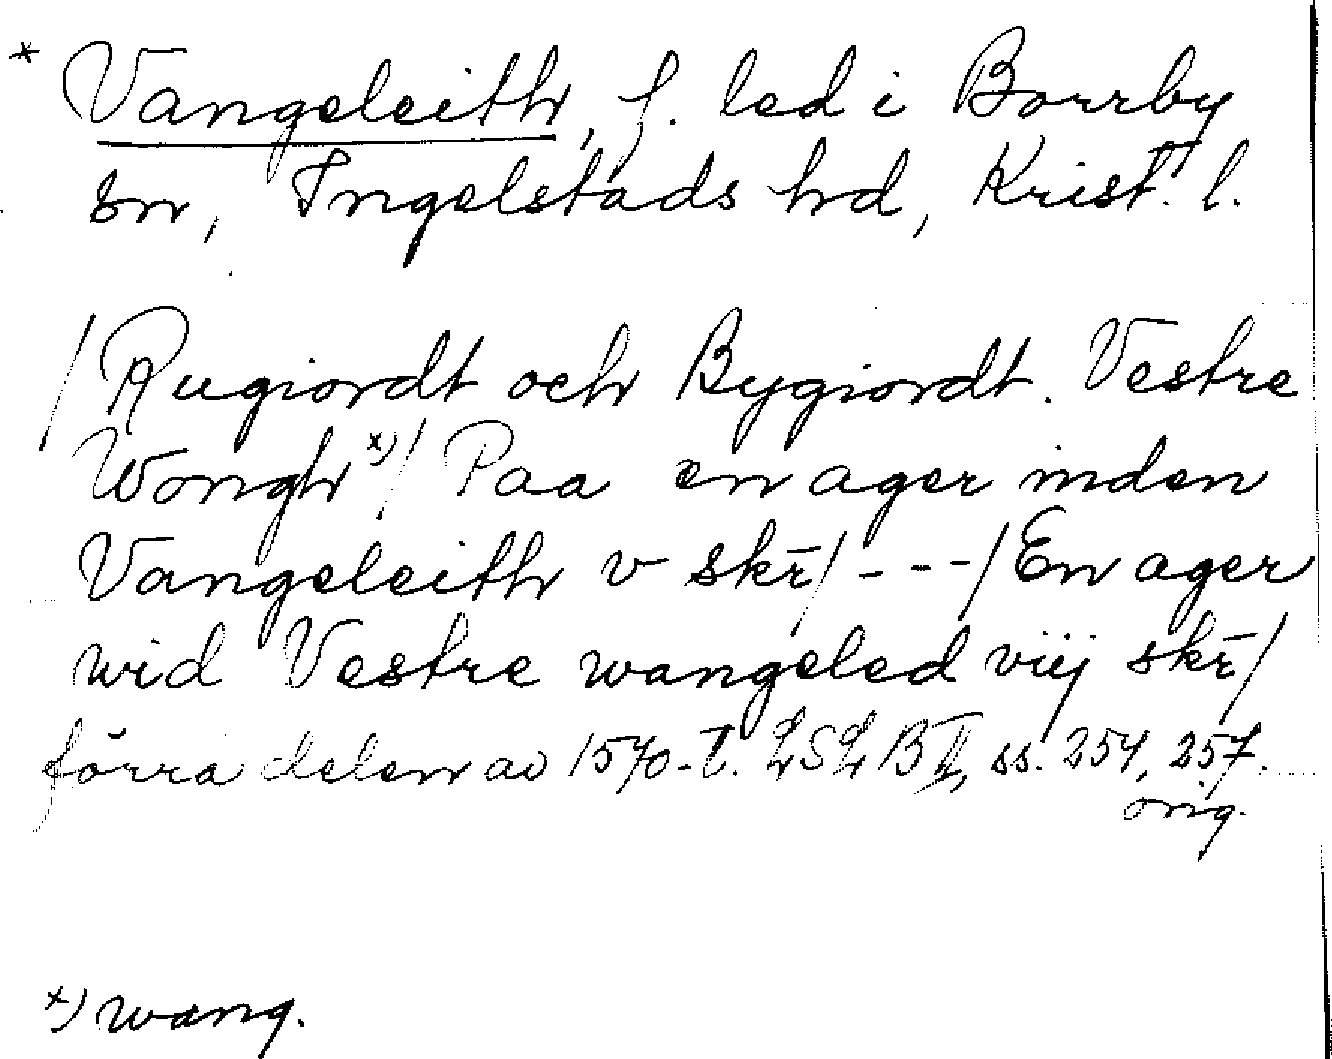 * Vangeleith, f. led i Borrby
sn, Ingelstads hd, Krist. l.
/Rugiordt och Bygiordt. Vestre
Wongh x)/ Paa en ager inden
Vangeleith v skr̄/ - - - /En ager
wid Vestre wangeled viij skr̄/
förra delen av 1570-t. LSL B II, ss. 254, 257.
orig.
x) wang.